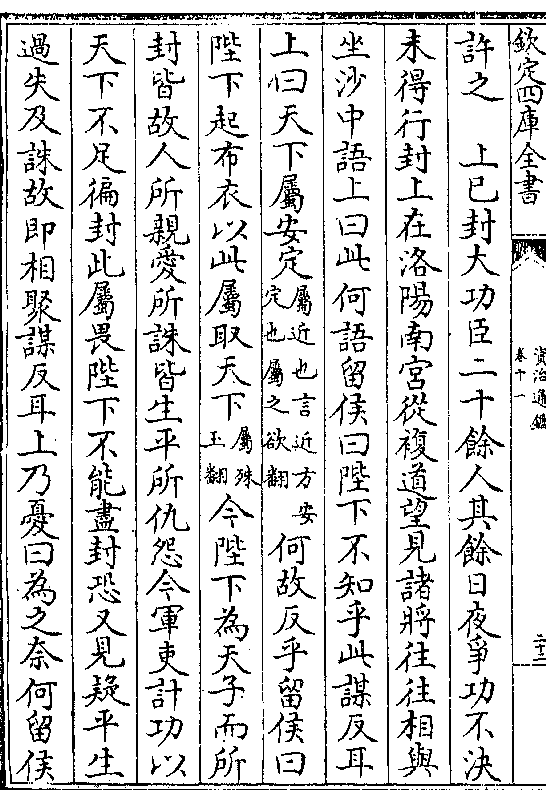 欽定四庫全書
資治通鑑
卷十一
二十二
許之　上已封大功臣二十餘人其餘日夜爭功不決
未得行封上在洛陽南宮從複道望見諸將往往相與
坐沙中語上曰此何語留侯曰陛下不知乎此謀反耳
上曰天下屬安定屬近也言近方安定也屬之欲翻何故反乎留侯曰
陛下起布衣以此屬取天下屬殊玉翻今陛下為天子而所
封皆故人所親愛所誅皆生平所仇怨今軍吏計功以
天下不足徧封此屬畏陛下不能盡封恐又見疑平生
過失及誅故即相聚謀反耳上乃憂曰為之奈何留侯